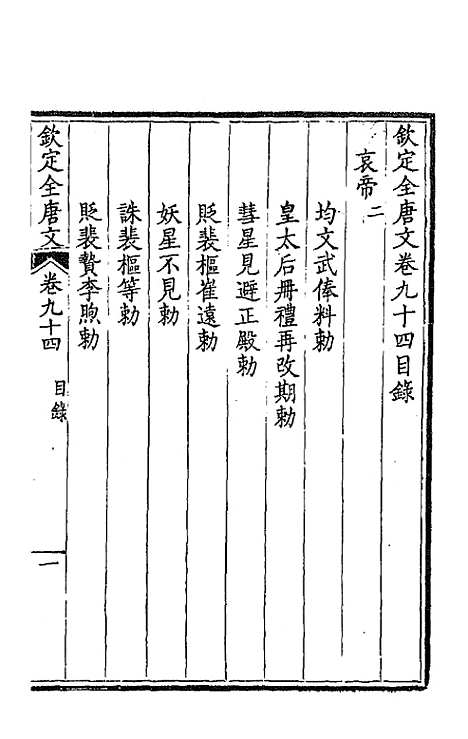 欽定全唐文卷九十四目錄
哀帝二
均文武俸料勅
皇太后冊禮再改期勅
彗星見避正殿勅
貶裴樞崔遠勅
妖星不見勅
誅裴樞等勅
貶裴贄李煦勅
欽定全唐文 卷九十四 目錄 一